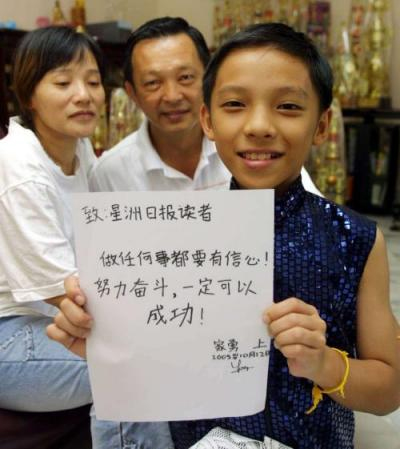 致:星洲日报读者
做任何事都要有信心!
努力奋斗,一定可以
成功!
家勇 上
2005年10月12日